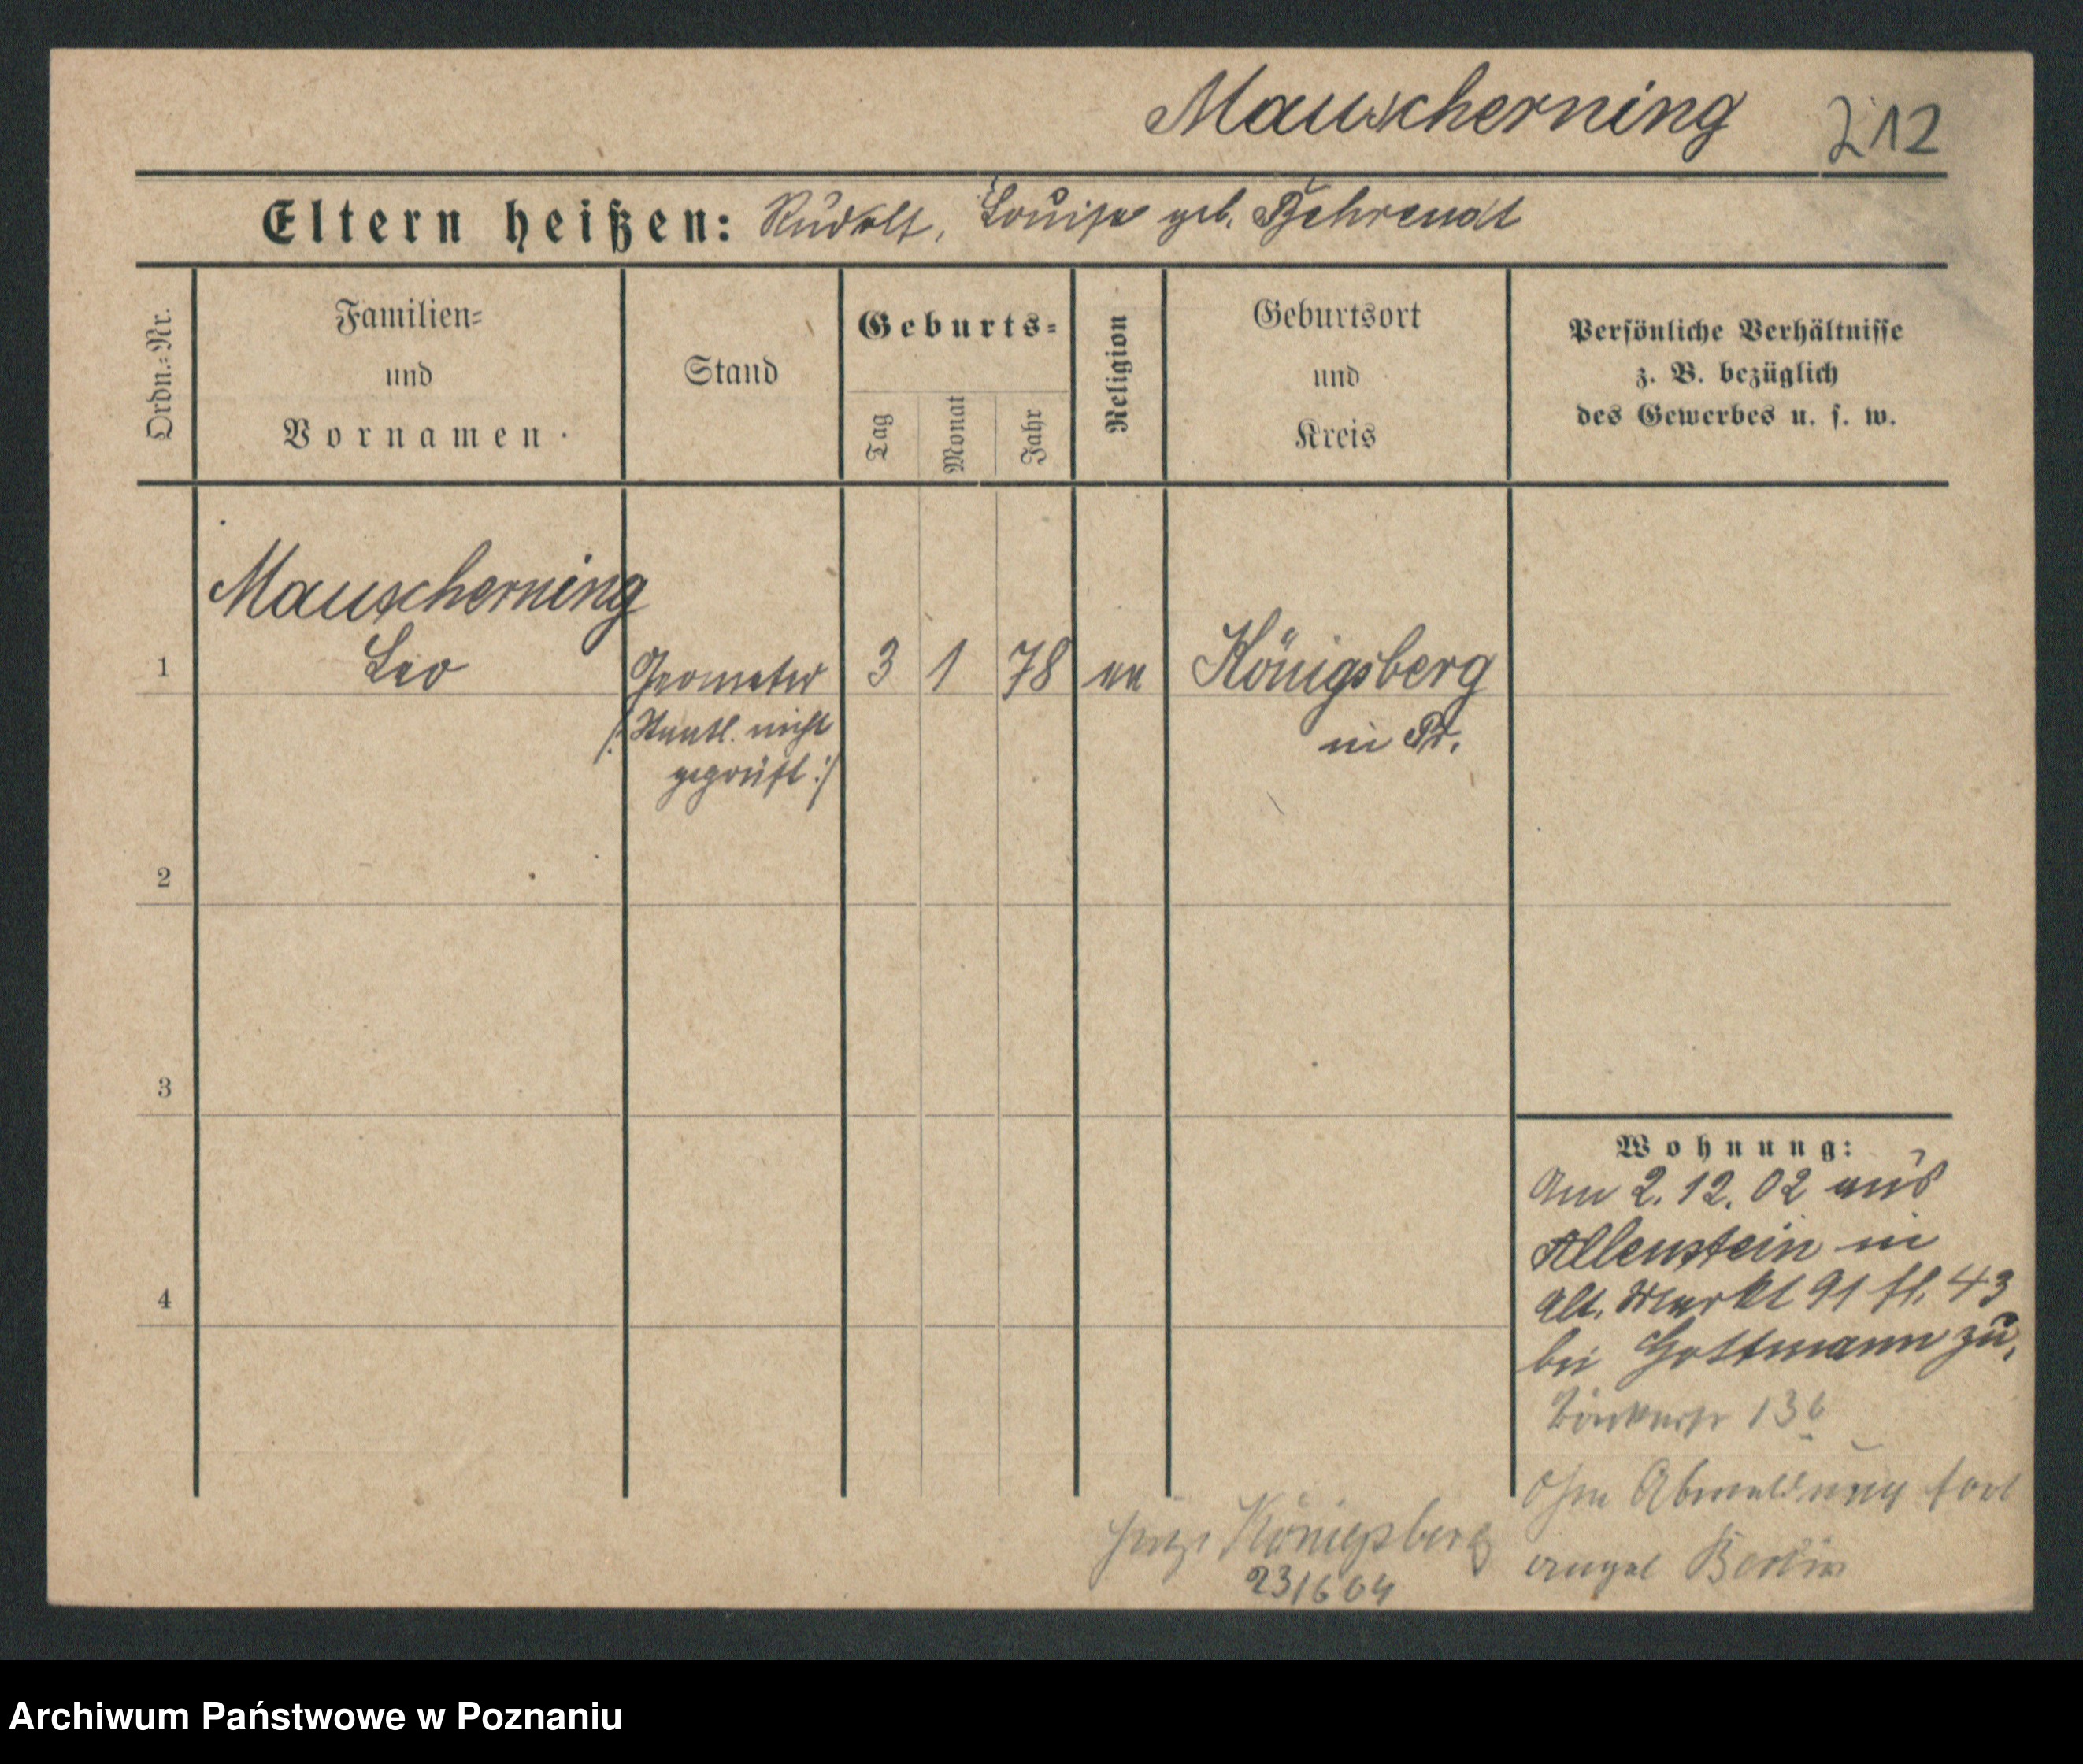 Mauscherning 212
Eltern heißen: Rudolf, Louise geb. Behrendt
Ordn.-Nr.
Familien-
und
Vornamen
Stand
Geburts-
Tag
Monat
Jahr
Religion
Geburtsort
und
Kreis
Persönliche Verhältnisse
z. B. bezüglich
des Gewerbes u. s. w.
Mauscherning
1 Leo Geometer 3 1 78 Königsberg
(: Staatl. nicht in Pr.
geprüft :)
2
3
Wohnung:
Am 2.12.02 aus
Allenstein in
4
Alt. Markt 91 Fl. 43
bei Gottmann zu.
13
Abmeldung fort
Königsberg angebl Berlin
23/6 04
Archiwum Państwowe w Poznaniu